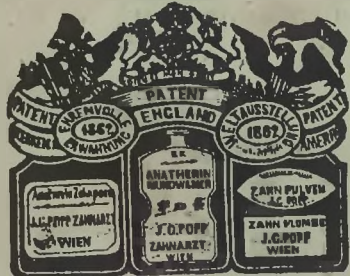 PATENT
ENGLAND
PATENT
EHRENVOLLE
1862
ERWÄHNUNG
WELTAUSSTELLUNG
1862
PATENT
AMERIKA
Anatherin Zahnpasta
J.G. POPP ZAHNARZT
WIEN
K.K.
ANATHERIN
MUNDWASSER
J.G. POPP
ZAHNARZT
WIEN
ZAHN PULVER
J.G. POPP
ZAHN PLOMBE
J.G. POPP
WIEN